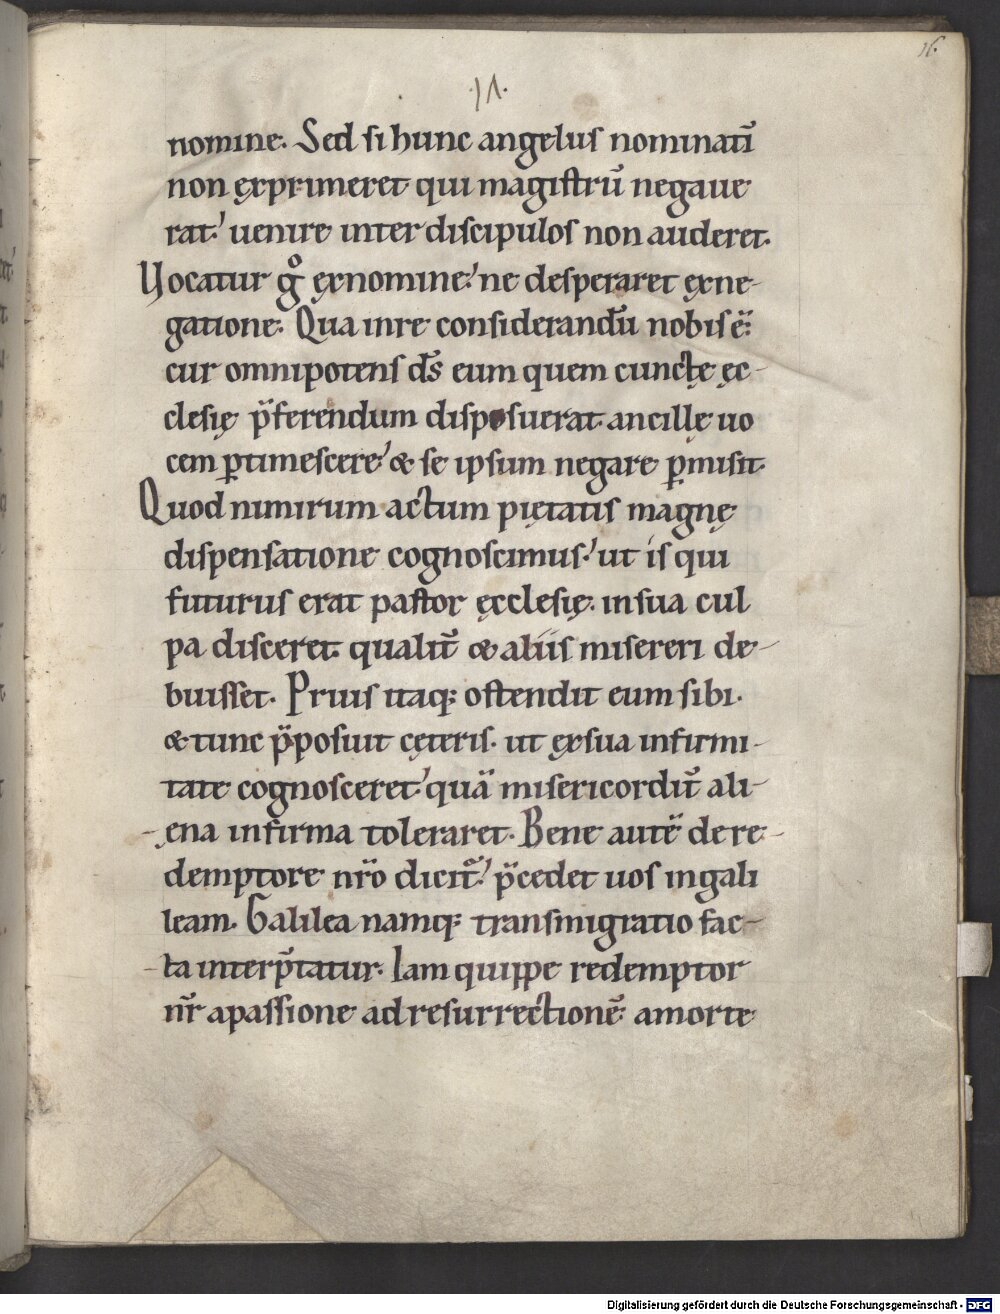 16.
·11·
nomine. Sed si hunc angelus nominatī
non ęxprimeret qui magistrū negaue
rat' uenire inter discipulos non auderet.
Vocatur gͦ ęxnomine' ne desperaret ęxne-
gatione. Qua inre considerandū nobis ē:
cur omnipotens ds̄ eum quem cunctę ęc-
clesię p̄ferendum disposuerat. ancillę uo
cem ꝑtimescere' & se ipsum negare ꝑmisit.
Quod nimirum actum pietatis magnę
dispensatione cognoscimus' ut is qui
futurus erat pastor ęcclesię. insua cul
pa disceret. qualit̄ & aliis misereri de-
buisset. Prius itaq; ostendit eum sibi.
& tunc p̄posuit cęteris. ut ęxsua infirmi-
tate cognosceret' quā misericordit̄ ali-
ena infirma toleraret. Bene autē de re-
demptore nr̄o dicit᷑' p̄cedet uos ingali
leam. Galilea namq; transmigratio fac-
ta interp̄tatur. Iam quippe redemptor
nr̄ apassione adresurrectionē. amorte
Digitalisierung gefördert durch die Deutsche Forschungsgemeinschaft - DFG